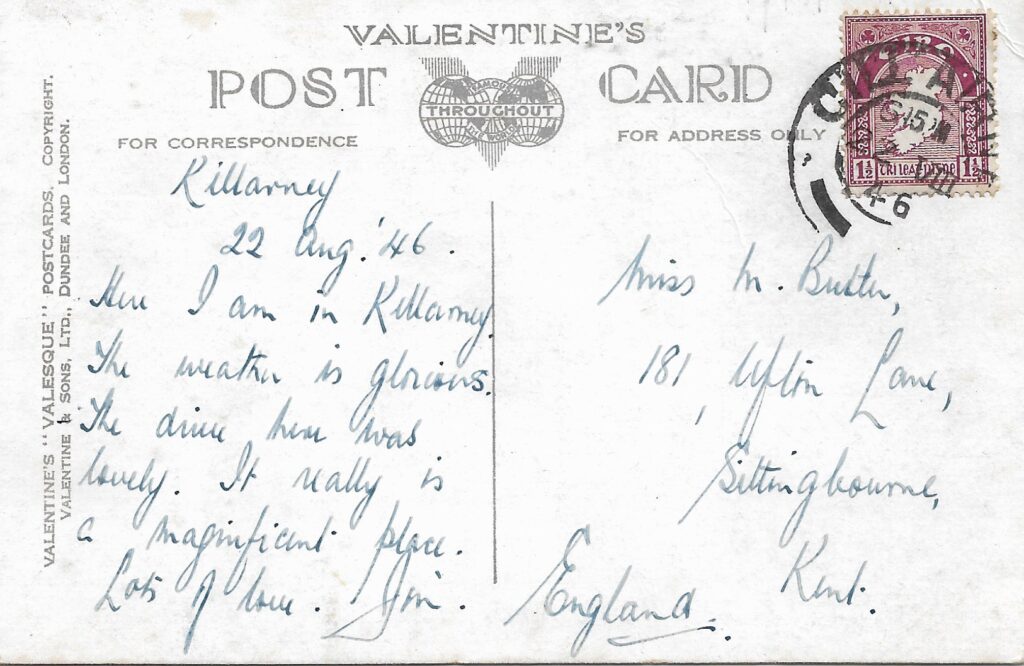 VALENTINE'S
POST CARD
FAMOUS
THROUGHOUT
THE WORLD
FOR CORRESPONDENCE
FOR ADDRESS ONLY
VALENTINE'S "VALESQUE" POSTCARDS. COPYRIGHT.
VALENTINE & SONS, LTD., DUNDEE AND LONDON.
Killarney
22 Aug. '46.
Here I am in Killarney.
The weather is glorious.
The drive here was
lovely. It really is
a magnificent place.
Lots of love. Jim.
Miss M. Butler,
181, Ufton Lane,
Sittingbourne,
Kent.
England.
CILL AIRNE
VIII
46
1½ 1½